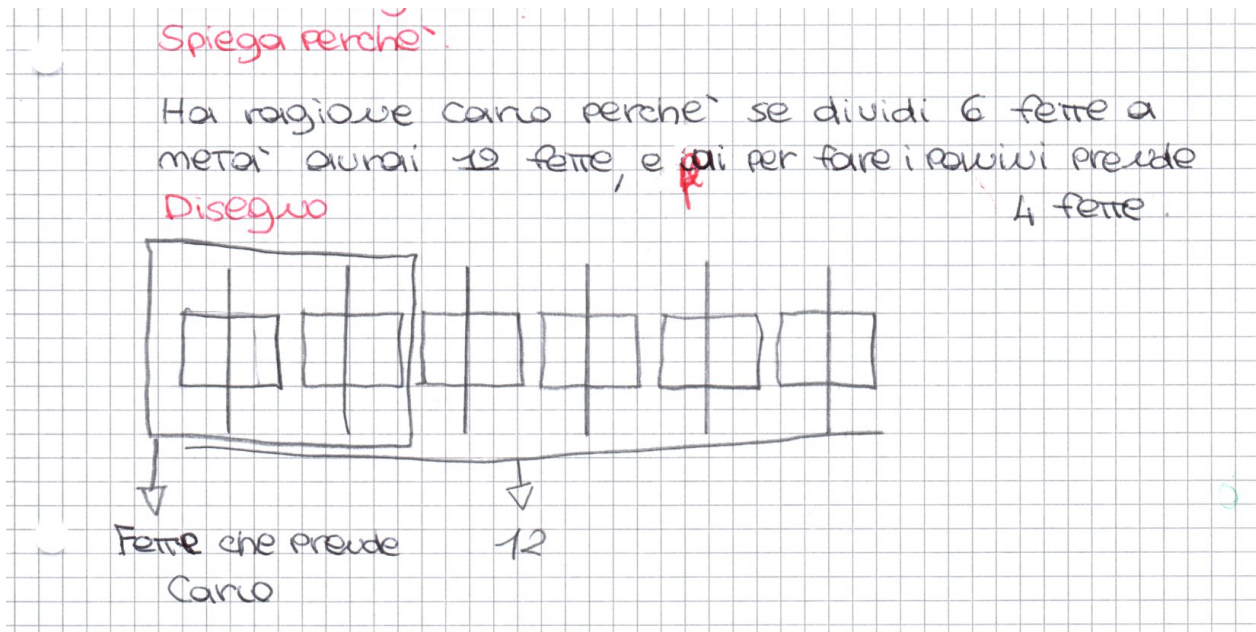 Spiega perchè.
Ha ragione Carlo perchè se dividi 6 fette a
metà avrai 12 fette, e poi per fare i panini prende
4 fette.
Disegno
Fette che prende
Carlo
12